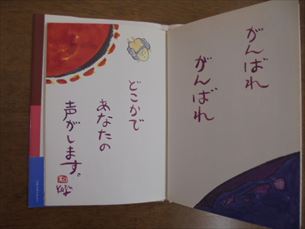 がんばれ
がんばれ
どこかで
あなたの
声がします。